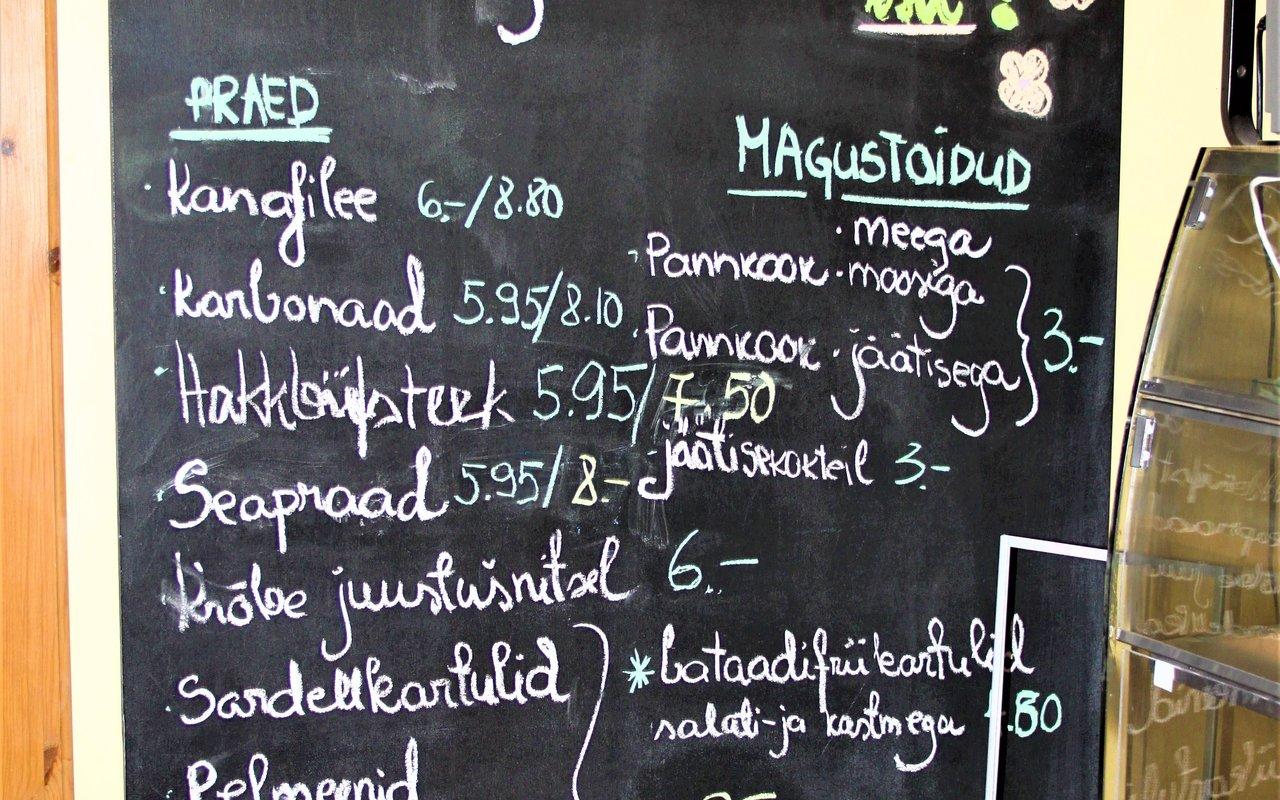 PRAED
Kanafilee 6.-/8.80
Karbonaad 5.95/8.10
Hakkbiifsteek 5.95/7.50
Seapraad 5.95/8.-
Krõbe juustušnitsel 6.-
Sardellkartulid
Pelmeenid
MAGUSTOIDUD
· meega
· Pannkook · moosiga
· Pannkook · jäätisega } 3.-
· jäätisekokteil 3.-
* bataadifriikartulid
salati-ja kastmega .50